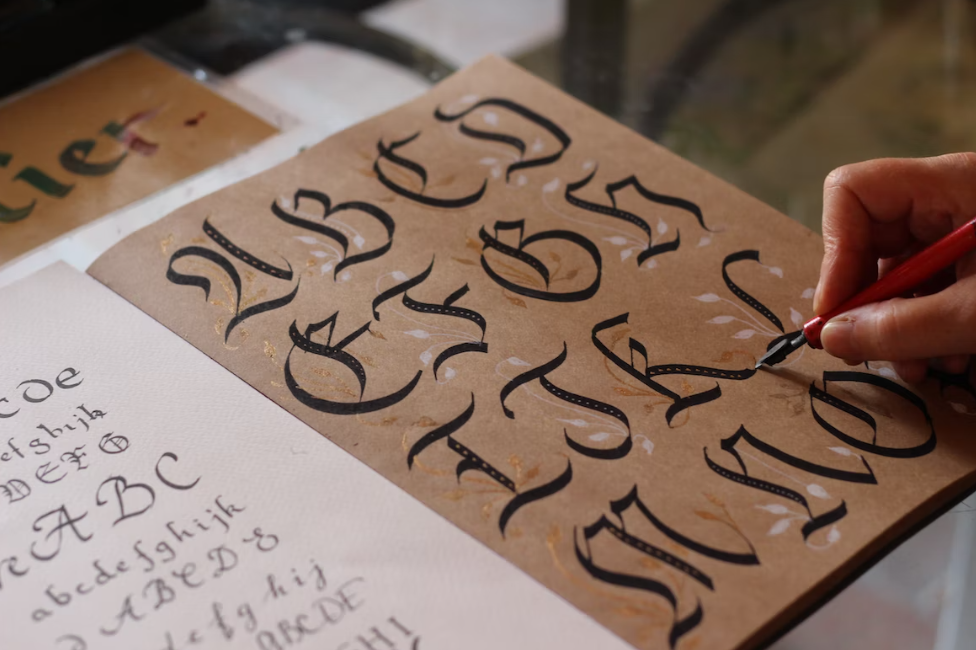 tier
A B C D
E F G H
I J K L
M N O
C D e
efghijk
DEFG
ABC
abcdefghijk
ABCDE
efghij
ABCDE
HI